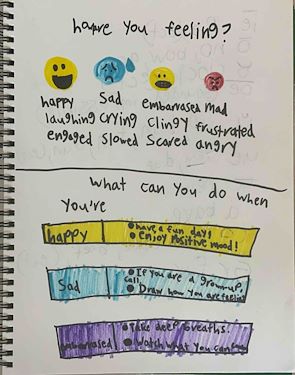 how are you feeling?
happy Sad embarrased mad
laughing crying clingy frustrated
engaged slowed scared angry
What can you do when
you're
happy
have a fun day!
Enjoy positive mood!
Sad
If you are a grown-up,
call
Draw how you are feeling
embarrased
Take deep breaths.
Watch what you can